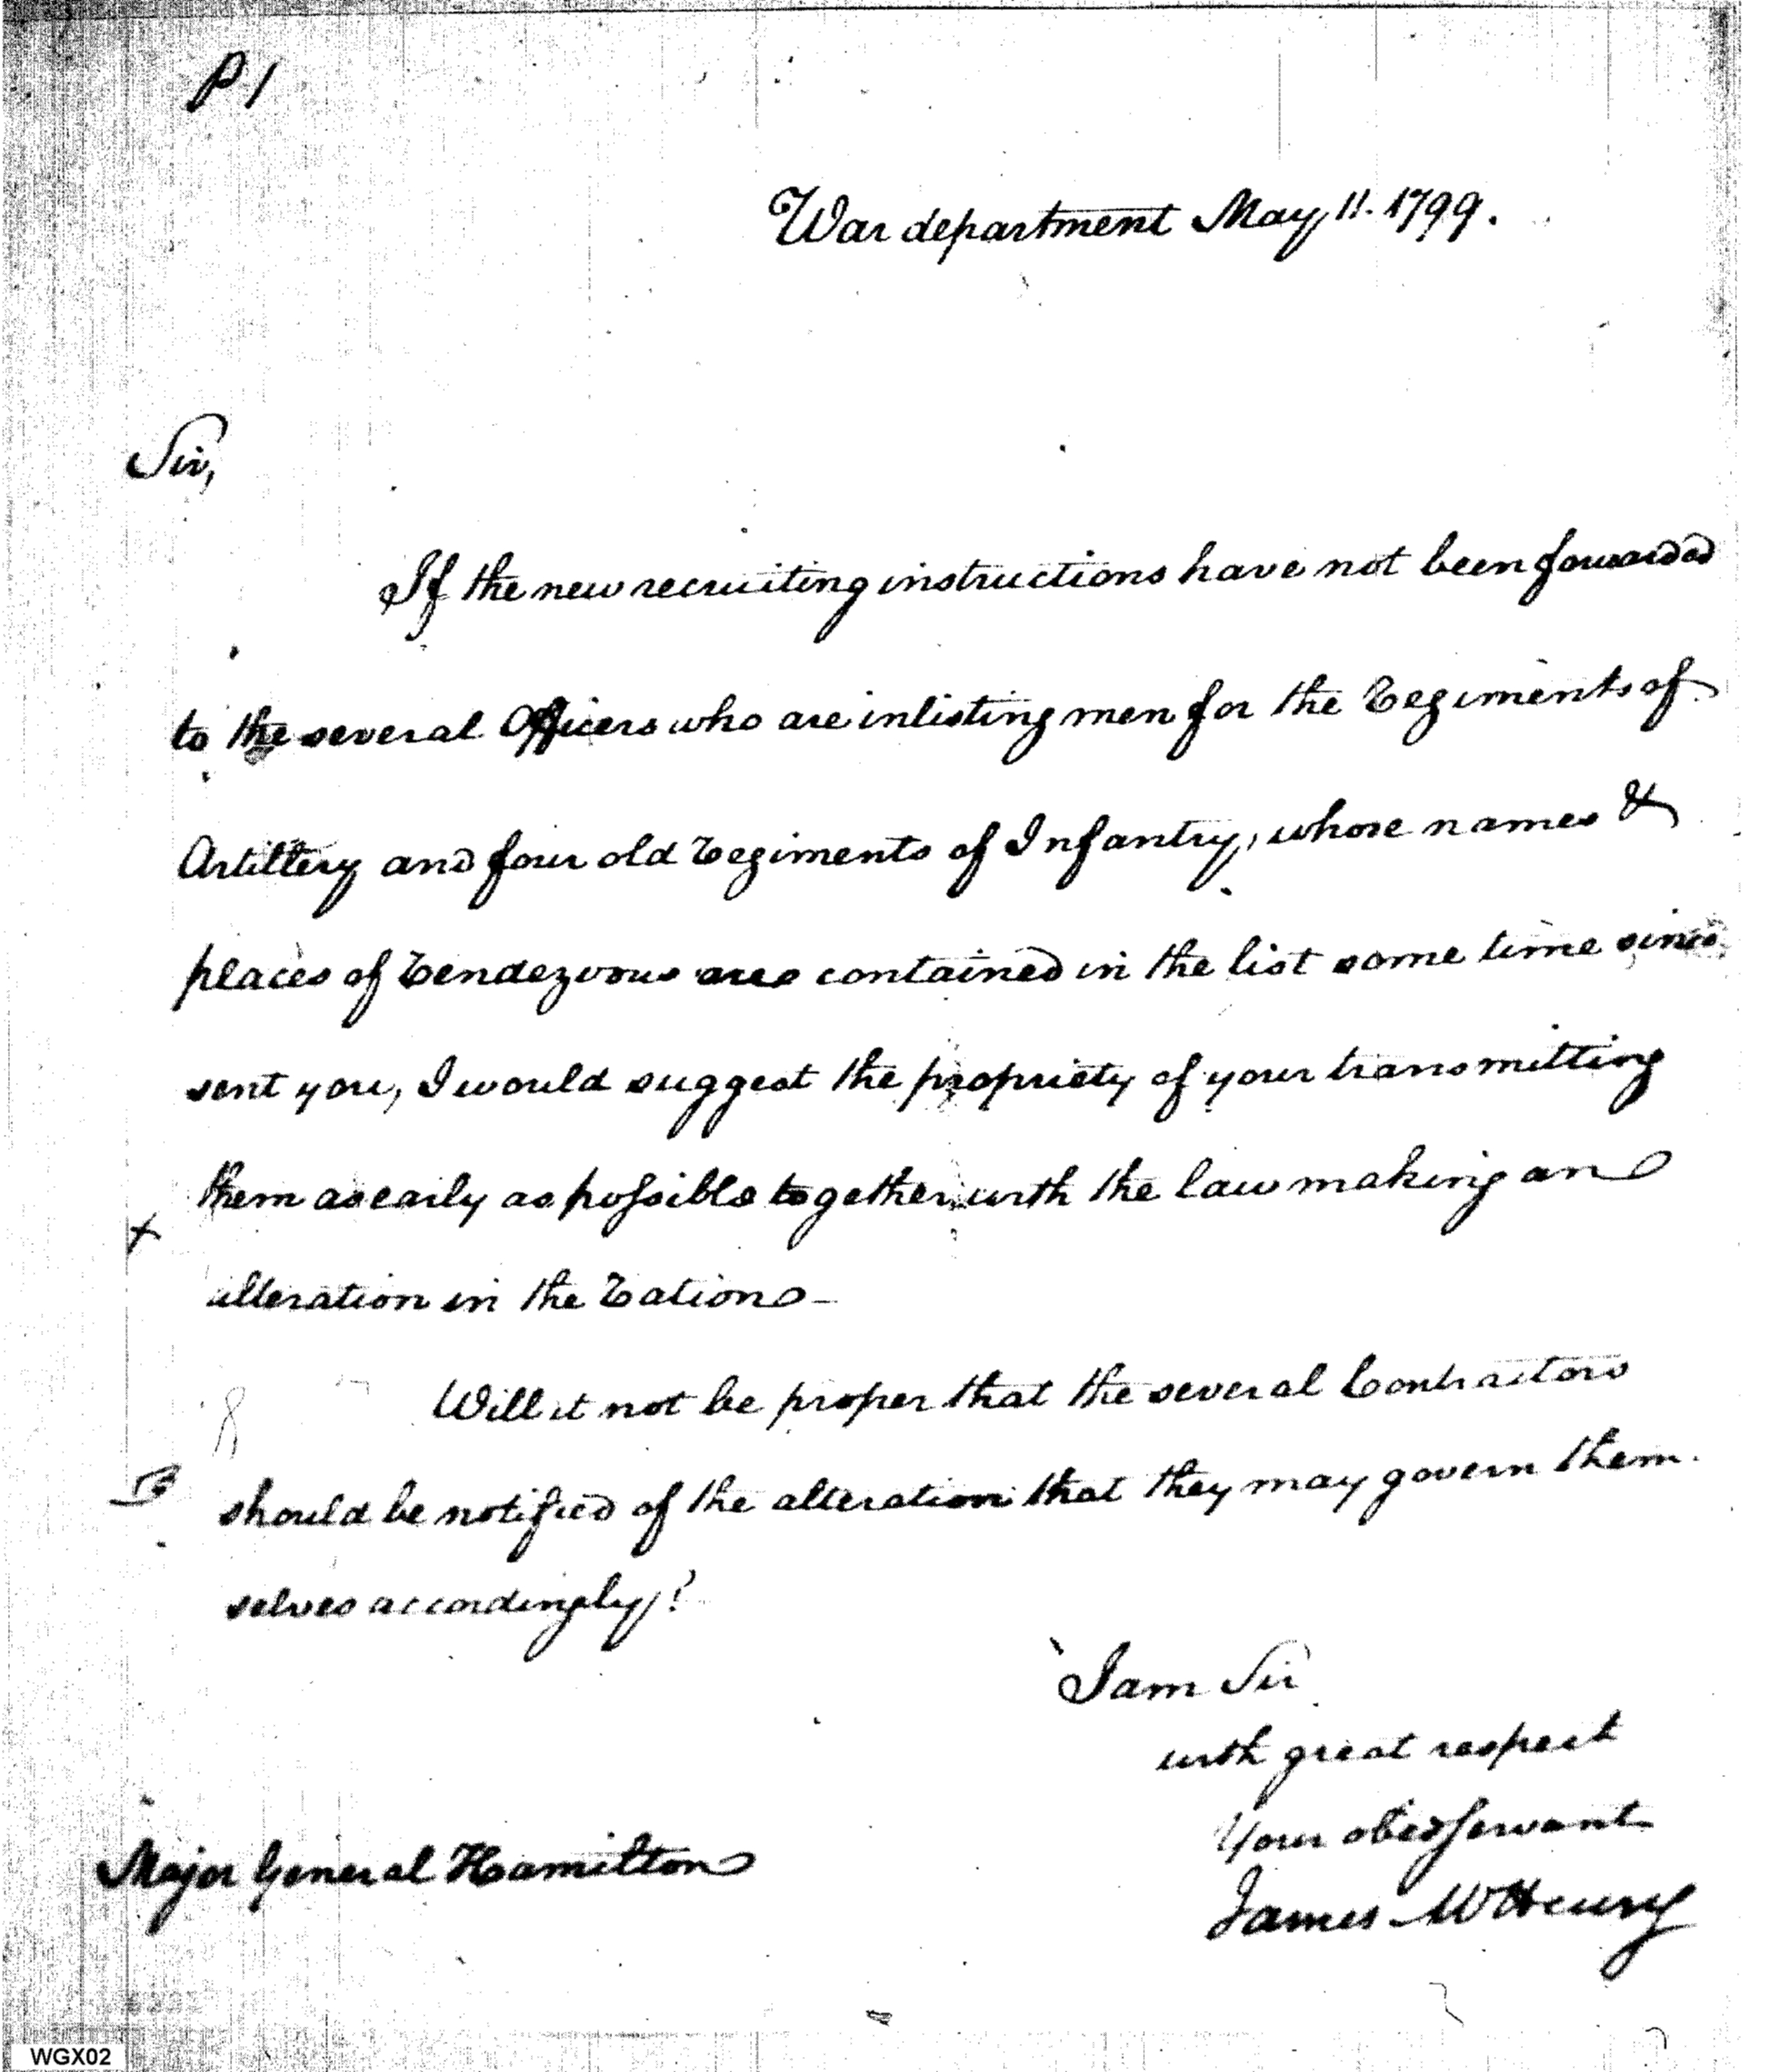 P 1
War department May 11. 1799.
Sir,
If the new recruiting instructions have not been forwarded
to the several Officers who are inlisting men for the Regiments of
Artillery and four old Regiments of Infantry, whose names &
places of Rendezvous are contained in the list some time since
sent you, I would suggest the propriety of your transmitting
them as early as possible together with the law making an
x
alteration in the Rations—
Will it not be proper that the several Contractors
B should be notified of the alteration that they may govern them-
selves accordingly?
I am Sir
with great respect
Your obed servant
Major General Hamilton
James McHenry
WGX02